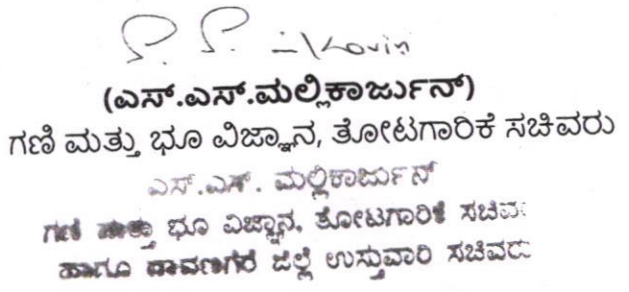 (ಎಸ್.ಎಸ್.ಮಲ್ಲಿಕಾರ್ಜುನ್)
ಗಣಿ ಮತ್ತು ಭೂ ವಿಜ್ಞಾನ, ತೋಟಗಾರಿಕೆ ಸಚಿವರು
ಎಸ್.ಎಸ್. ಮಲ್ಲಿಕಾರ್ಜುನ್
ಗಣಿ ಮತ್ತು ಭೂ ವಿಜ್ಞಾನ, ತೋಟಗಾರಿಕೆ ಸಚಿವರು
ಹಾಗೂ ದಾವಣಗೆರೆ ಜಿಲ್ಲೆ ಉಸ್ತುವಾರಿ ಸಚಿವರು